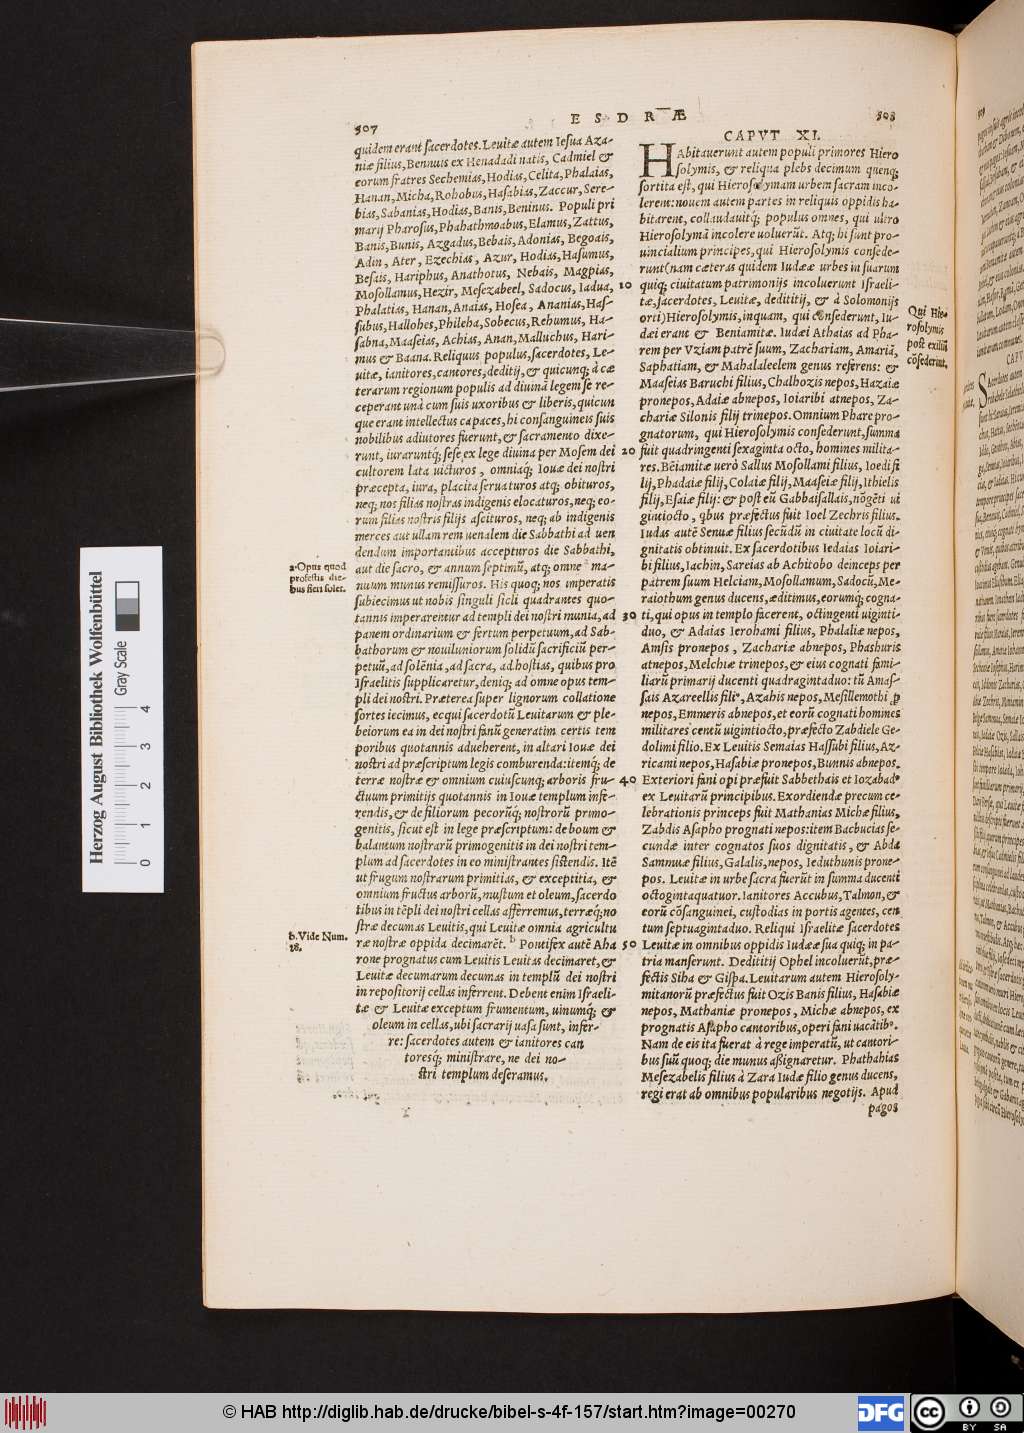 507
E S D R Æ
508
quidem erant sacerdotes. Leuitæ autem Iesua Aza-
niæ filius, Bennuis ex Henadadi natis, Cadmiel &
eorum fratres Sechemias, Hodias, Celita, Phalaias,
Hanan, Micha, Rohobus, Hasabias, Zaccur, Sere-
bias, Sabanias, Hodias, Banis, Beninus. Populi pri
marij Pharosus, Phahathmoabus, Elamus, Zattus,
Banis, Bunis, Azgadus, Bebais, Adonias, Begoais,
Adin, Ater, Ezechias, Azur, Hodias, Hasumus,
Besais, Hariphus, Anathotus, Nebais, Magpias,
Mosollamus, Hezir, Mesezabeel, Sadocus, Iadua,
Phalatias, Hanan, Anaias, Hosea, Ananias, Has-
subus, Hallohes, Phileha, Sobecus, Rehumus, Ha-
sabna, Maaseias, Achias, Anan, Malluchus, Hari-
mus & Baana. Reliquus populus, sacerdotes, Le-
uitæ, ianitores, cantores, deditij, & quicunq; à cæ
terarum regionum populis ad diuinā legem se re-
ceperant unà cum suis uxoribus & liberis, quicun
que erant intellectus capaces, hi consanguineis suis
nobilibus adiutores fuerunt, & sacramento dixe-
runt, iuraruntq́; sese ex lege diuina per Mosem dei
cultorem lata uicturos, omniaq; Iouæ dei nostri
præcepta, iura, placita seruaturos atq; obituros,
neq; nos filias nostras indigenis elocaturos, neq; eo-
rum filias nostris filijs ascituros, neq; ab indigenis
merces aut ullam rem uenalem die Sabbathi ad uen
dendum importantibus accepturos die Sabbathi,
aut die sacro, & annum septimū, atq; omne a ma-
nuum munus remissuros. His quoq; nos imperatis
subiecimus ut nobis singuli sicli quadrantes quo-
tannis imperarentur ad templi dei nostri munia, ad
panem ordinarium & fertum perpetuum, ad Sab-
bathorum & nouiluniorum solidū sacrificiū per-
petuū, ad solēnia, ad sacra, ad hostias, quibus pro
Israelitis supplicaretur, deniq; ad omne opus tem-
pli dei nostri. Præterea super lignorum collatione
sortes iecimus, ecqui sacerdotū Leuitarum & ple-
beiorum ea in dei nostri fanū generatim certis tem
poribus quotannis adueherent, in altari Iouæ dei
nostri ad præscriptum legis comburenda: itemq; de
terræ nostræ & omnium cuiuscunq; arboris fru-
ctuum primitijs quotannis in Iouæ templum infe-
rendis, & de filiorum pecorūq́; nostrorū primo-
genitis, sicut est in lege præscriptum: de boum &
balantum nostrarū primogenitis in dei nostri tem-
plum ad sacerdotes in eo ministrantes sistendis. Itē
ut frugum nostrarum primitias, & exceptitia, &
omnium fructus arborū, mustum et oleum, sacerdo
tibus in tēpli dei nostri cellas afferremus, terræq́; no
stræ decumas Leuitis, qui Leuitæ omnia agricultu
ræ nostræ oppida decimarēt. b Pontifex autē Aha
rone prognatus cum Leuitis Leuitas decimaret, &
Leuitæ decumarum decumas in templū dei nostri
in repositorij cellas inferrent. Debent enim Israeli-
tæ & Leuitæ exceptum frumentum, uinumq́; &
oleum in cellas, ubi sacrarij uasa sunt, infer-
re: sacerdotes autem & ianitores can
toresq́; ministrare, ne dei no-
stri templum deseramus.
a. Opus quod
profestis die-
bus fieri solet.
b. Vide Num.
18.
10
20
30
40
50
CAPVT XI.
HAbitauerunt autem populi primores Hiero
solymis, & reliqua plebs decimum quenq;
sortita est, qui Hierosolymam urbem sacram inco-
lerent: nouem autem partes in reliquis oppidis ha-
bitarent, collaudauitq́; populus omnes, qui ultro
Hierosolymā incolere uoluerūt. Atq; hi sunt pro-
uincialium principes, qui Hierosolymis consede-
runt (nam cæteras quidem Iudææ urbes in suarum
quiq; ciuitatum patrimonijs incoluerunt Israeli-
tæ, sacerdotes, Leuitæ, dedititij, & à Solomonijs
orti) Hierosolymis, inquam, qui consederunt, Iu-
dæi erant & Beniamitæ. Iudæi Athaias ad Pha-
rem per Vziam patrē suum, Zachariam, Amariā,
Saphatiam, & Mahalaleelem genus referens: &
Maaseias Baruchi filius, Chalhozis nepos, Hazaiæ
pronepos, Adaiæ abnepos, Ioiaribi atnepos, Za-
chariæ Silonis filij trinepos. Omnium Phare pro-
gnatorum, qui Hierosolymis consederunt, summa
fuit quadringenti sexaginta octo, homines milita-
res. Bēiamitæ uerò Sallus Mosollami filius, Ioedi fi
lij, Phadaiæ filij, Colaiæ filij, Maaseiæ filij, Ithielis
filij, Esaiæ filij: & post eū Gabbaisallais, nōgēti ui
gintiocto, qbus præfectus fuit Ioel Zechris filius.
Iudas autē Senuæ filius secūdū in ciuitate locū di-
gnitatis obtinuit. Ex sacerdotibus Iedaias Ioiari-
bi filius, Iachin, Sareias ab Achitobo deinceps per
patrem suum Helciam, Mosollamum, Sadocū, Me-
raiothum genus ducens, æditimus, eorumq́; cogna-
ti, qui opus in templo facerent, octingenti uiginti-
duo, & Adaias Ierohami filius, Phalaliæ nepos,
Amsis pronepos, Zachariæ abnepos, Phashuris
atnepos, Melchiæ trinepos, & eius cognati fami-
liarū primarij ducenti quadragintaduo: tū Amas-
sais Azareellis filius, Azahis nepos, Mesillemothi p
nepos, Emmeris abnepos, et eorū cognati homines
militares centū uigintiocto, præfecto Zabdiele Ge-
dolimi filio. Ex Leuitis Semaias Hassubi filius, Az-
ricami nepos, Hasabiæ pronepos, Bunnis abnepos.
Exteriori fani opi præfuit Sabbethais et Iozabadus
ex Leuitarū principibus. Exordiendæ precum ce-
lebrationis princeps fuit Mathanias Michæ filius,
Zabdis Asapho prognati nepos: item Bacbucias se-
cundæ inter cognatos suos dignitatis, & Abda
Sammuæ filius, Galalis, nepos, Ieduthunis prone-
pos. Leuitæ in urbe sacra fuerūt in summa ducenti
octogintaquatuor. Ianitores Accubus, Talmon, &
eorū cōsanguinei, custodias in portis agentes, cen
tum septuagintaduo. Reliqui Israelitæ sacerdotes
Leuitæ in omnibus oppidis Iudææ sua quiq; in pa-
tria manserunt. Dedititij Ophel incoluerūt, præ-
fectis Siha & Gispa. Leuitarum autem Hierosoly-
mitanorū præfectus fuit Ozis Banis filius, Hasabiæ
nepos, Mathaniæ pronepos, Michæ abnepos, ex
prognatis Asapho cantoribus, operi fani uacātibus.
Nam de eis ita fuerat à rege imperatū, ut cantori-
bus suū quoq; die munus assignaretur. Phathahias
Mesezabelis filius à Zara Iudæ filio genus ducens,
regi erat ab omnibus popularibus negotijs. Apud
pagos
Qui Hie-
rosolymis
post exiliū
cōsederint.
Herzog August Bibliothek Wolfenbüttel
Gray Scale
0 1 2 3 4
© HAB http://diglib.hab.de/drucke/bibel-s-4f-157/start.htm?image=00270
DFG
cc BY SA